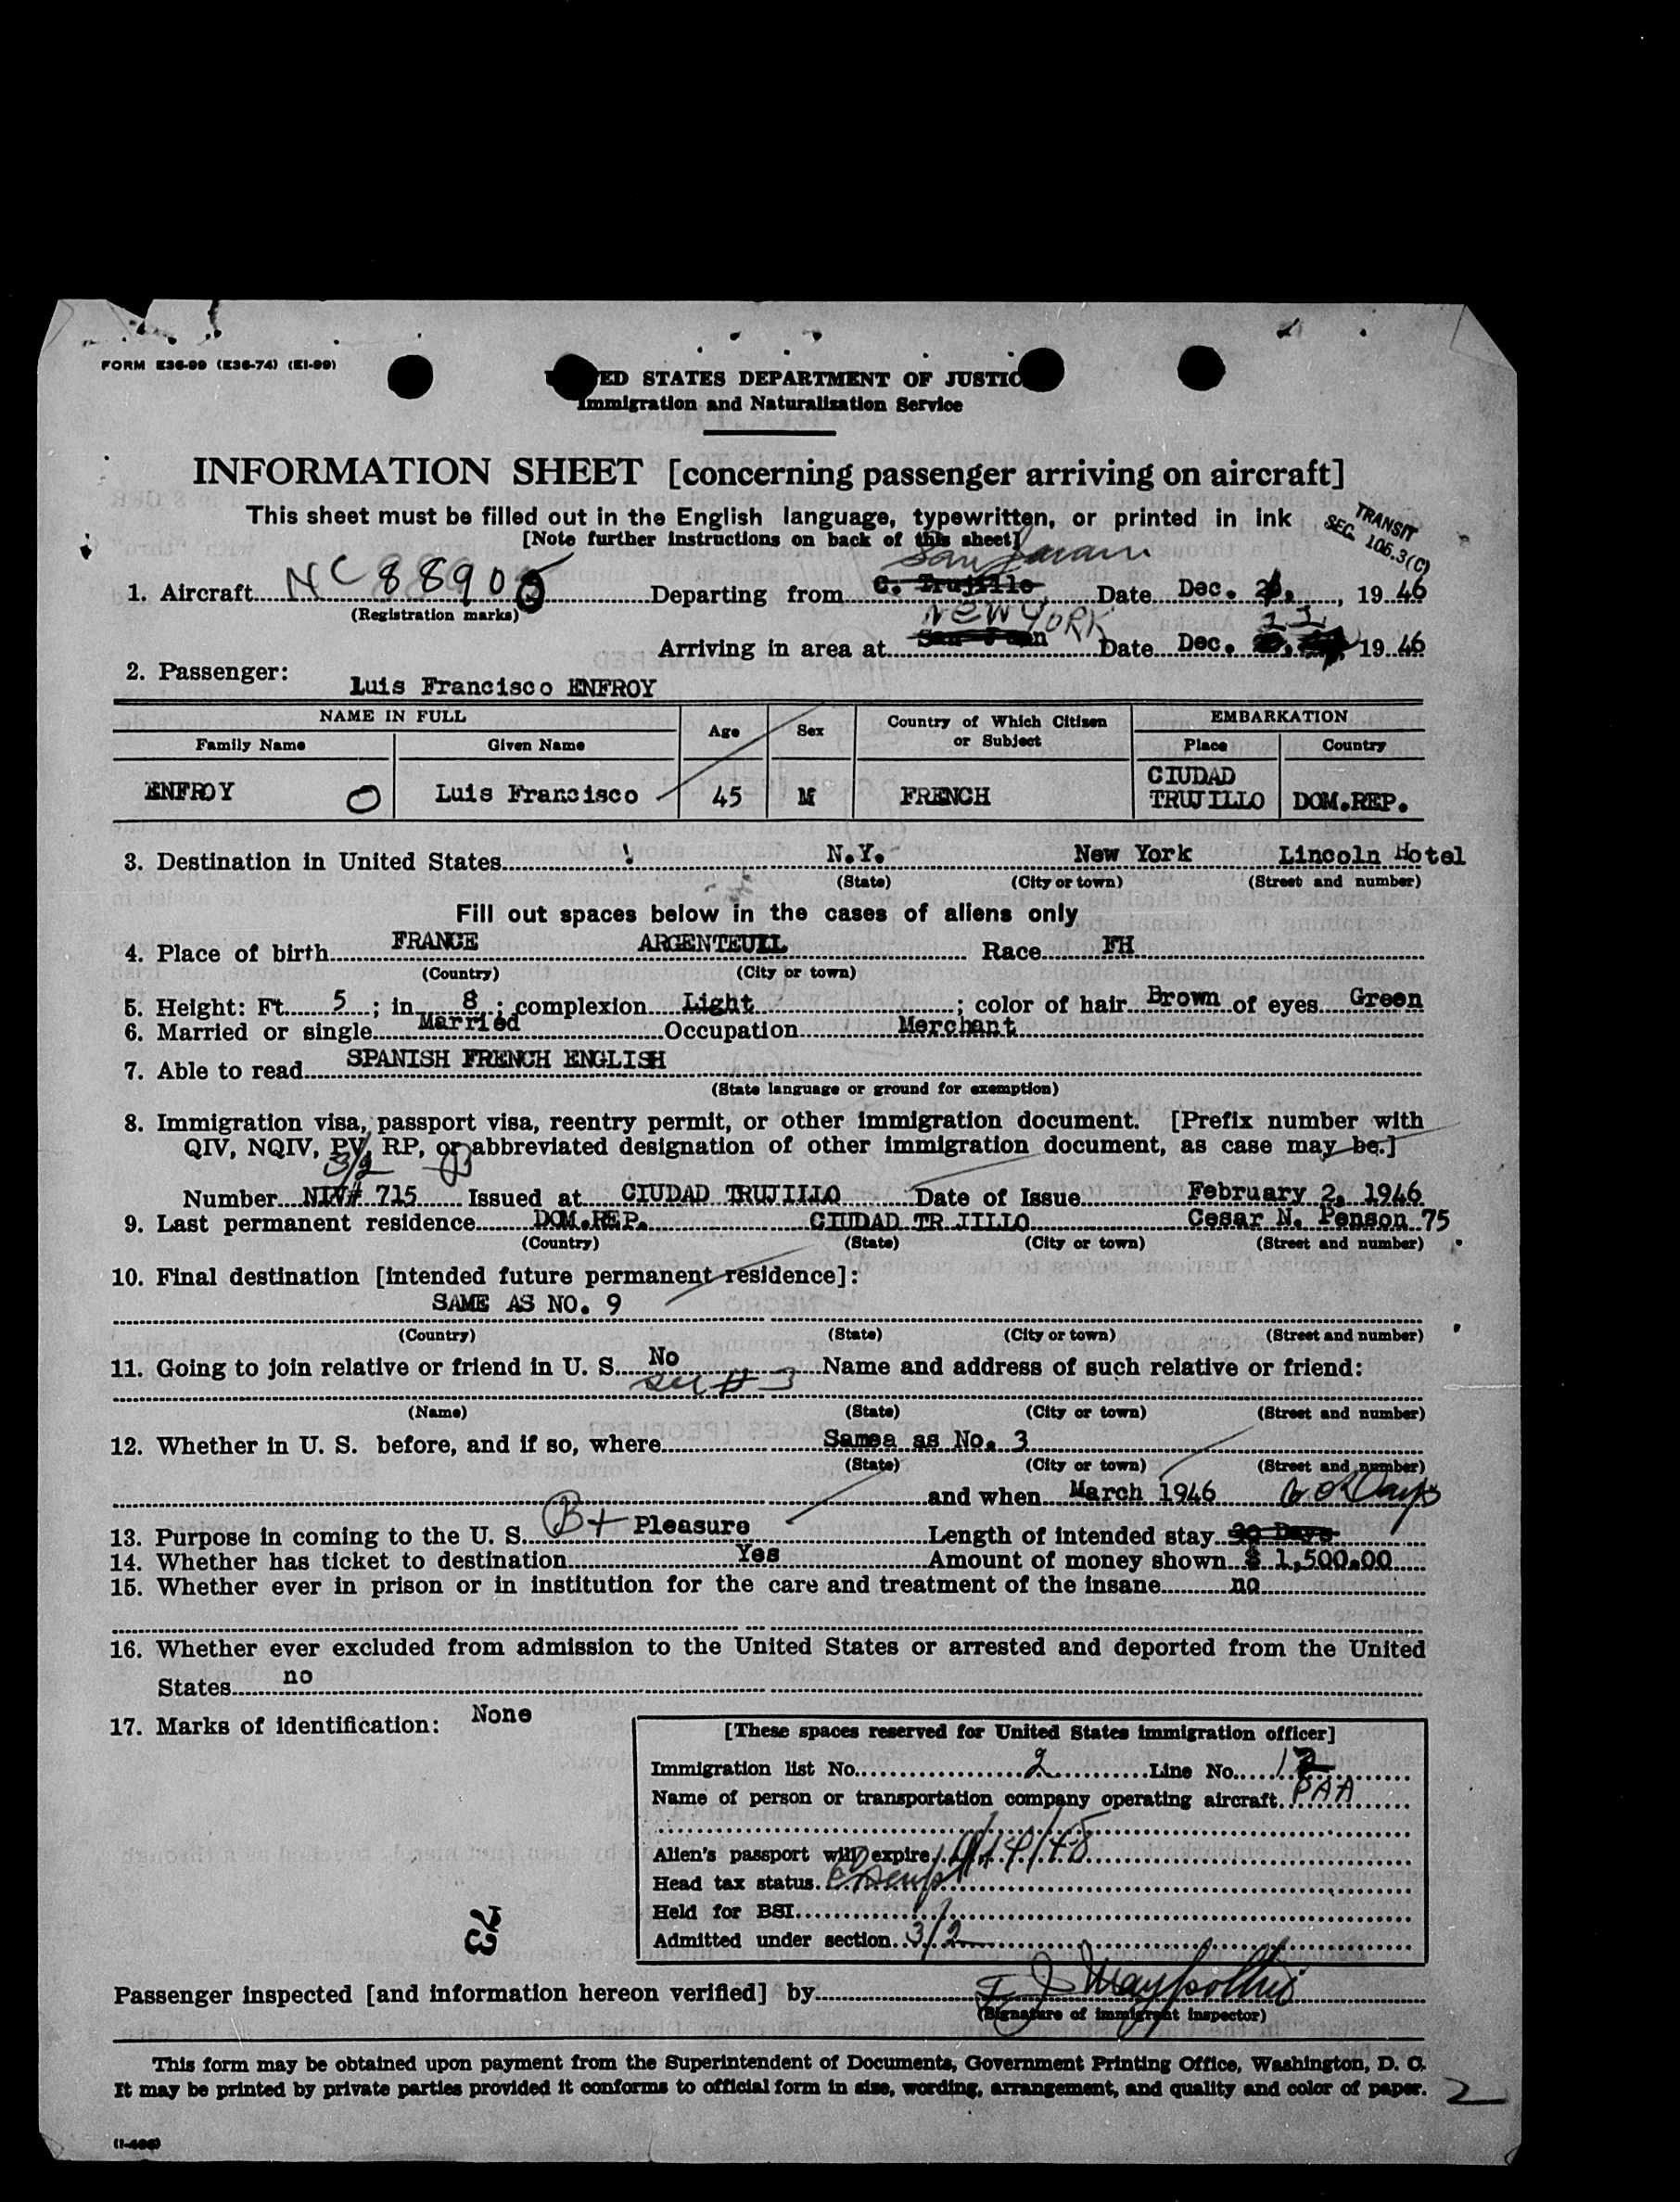 FORM E36-99 (E36-74) (EI-99)
ED STATES DEPARTMENT OF JUSTIC
Immigration and Naturalization Service
INFORMATION SHEET [concerning passenger arriving on aircraft]
This sheet must be filled out in the English language, typewritten, or printed in ink
[Note further instructions on back of this sheet]
TRANSIT
SEC. 106.3(C)
San Juan
1. Aircraft NC 88905 Departing from C. Trujillo Date Dec. , 19 46
(Registration marks)
NEW YORK
Arriving in area at San Juan Date Dec. 19 46
2. Passenger: Luis Francisco ENFROY
NAME IN FULL Age Sex Country of Which Citizen or Subject EMBARKATION
Family Name Given Name Place Country
ENFROY Luis Francisco 45 M FRENCH CIUDAD TRUJILLO DOM.REP.
3. Destination in United States N.Y. New York Lincoln Hotel
(State) (City or town) (Street and number)
Fill out spaces below in the cases of aliens only
4. Place of birth FRANCE ARGENTEUIL Race FH
(Country) (City or town)
5. Height: Ft. 5 ; in. 8 ; complexion Light ; color of hair Brown of eyes Green
6. Married or single Married Occupation Merchant
7. Able to read SPANISH FRENCH ENGLISH
(State language or ground for exemption)
8. Immigration visa, passport visa, reentry permit, or other immigration document. [Prefix number with
QIV, NQIV, PV, RP, or abbreviated designation of other immigration document, as case may be.]
3/2
Number NIV# 715 Issued at CIUDAD TRUJILLO Date of Issue February 2, 1946
9. Last permanent residence DOM.REP. CIUDAD TR JILLO Cesar N. Penson 75
(Country) (State) (City or town) (Street and number)
10. Final destination [intended future permanent residence]:
SAME AS NO. 9
(Country) (State) (City or town) (Street and number)
11. Going to join relative or friend in U. S. No Name and address of such relative or friend:
see # 3
(Name) (State) (City or town) (Street and number)
12. Whether in U. S. before, and if so, where Samea as No. 3
(State) (City or town) (Street and number)
and when March 1946 60 Days
13. Purpose in coming to the U. S. B + Pleasure Length of intended stay 30 Days
14. Whether has ticket to destination Yes Amount of money shown $ 1,500.00
15. Whether ever in prison or in institution for the care and treatment of the insane no
16. Whether ever excluded from admission to the United States or arrested and deported from the United
States no
17. Marks of identification: None
[These spaces reserved for United States immigration officer]
Immigration list No. 2 Line No. 12
Name of person or transportation company operating aircraft. PAA
Alien's passport will expire
Head tax status. exempt
Held for BSI
Admitted under section. 3/2
73
Passenger inspected [and information hereon verified] by
(Signature of immigrant inspector)
This form may be obtained upon payment from the Superintendent of Documents, Government Printing Office, Washington, D. C.
It may be printed by private parties provided it conforms to official form in size, wording, arrangement, and quality and color of paper.
2